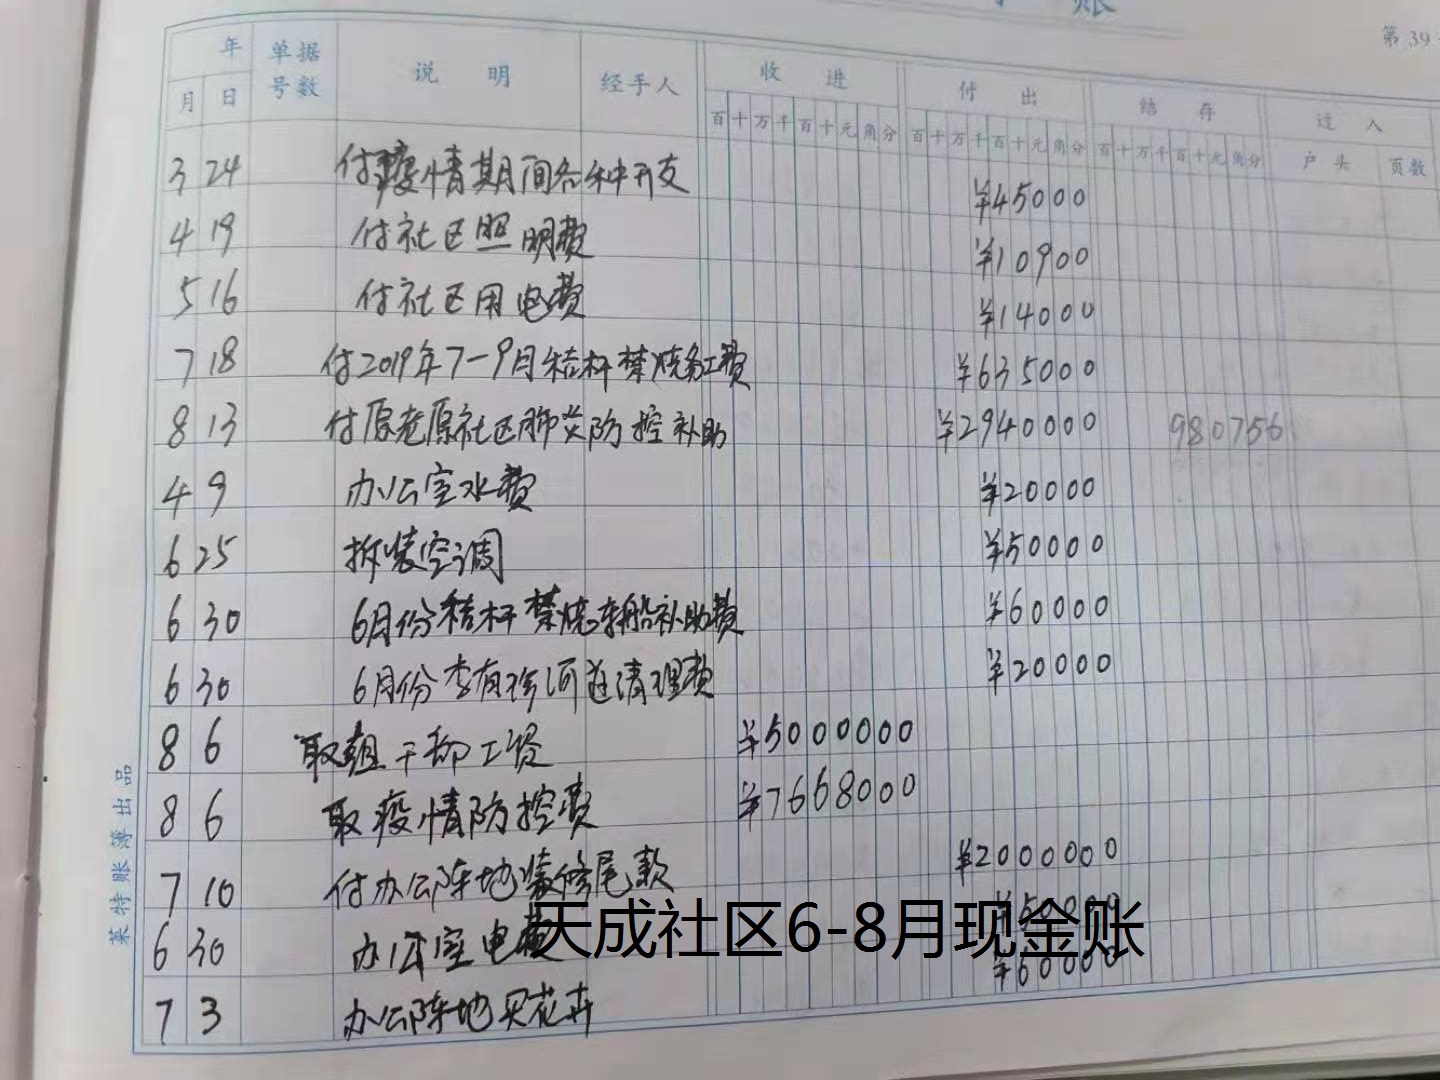 账
第 39
年 单据号数 说 明 经手人 收 进 付 出 结 存 过 入
月 日 百十万千百十元角分 百十万千百十元角分 百十万千百十元角分 户 头 页数
3 24 付疫情期间各种开支 ¥45000
4 19 付社区照明费 ¥10900
5 16 付社区用电费 ¥14000
7 18 付2019年7-9月秸杆禁烧务工费 ¥635000
8 13 付原老原社区肺炎防控补助 ¥2940000 980756
4 9 办公室水费 ¥20000
6 25 拆装空调 ¥50000
6 30 6月份秸杆禁烧车船补助费 ¥60000
6 30 6月份李有珍河道清理费 ¥20000
8 6 取组干部工资 ¥5000000
8 6 取疫情防控费 ¥7668000
7 10 付办公阵地装修尾款 ¥2000000
6 30 办公室电费 ¥50000
7 3 办公阵地买花卉 ¥60000
天成社区6-8月现金账
莱特账簿出品